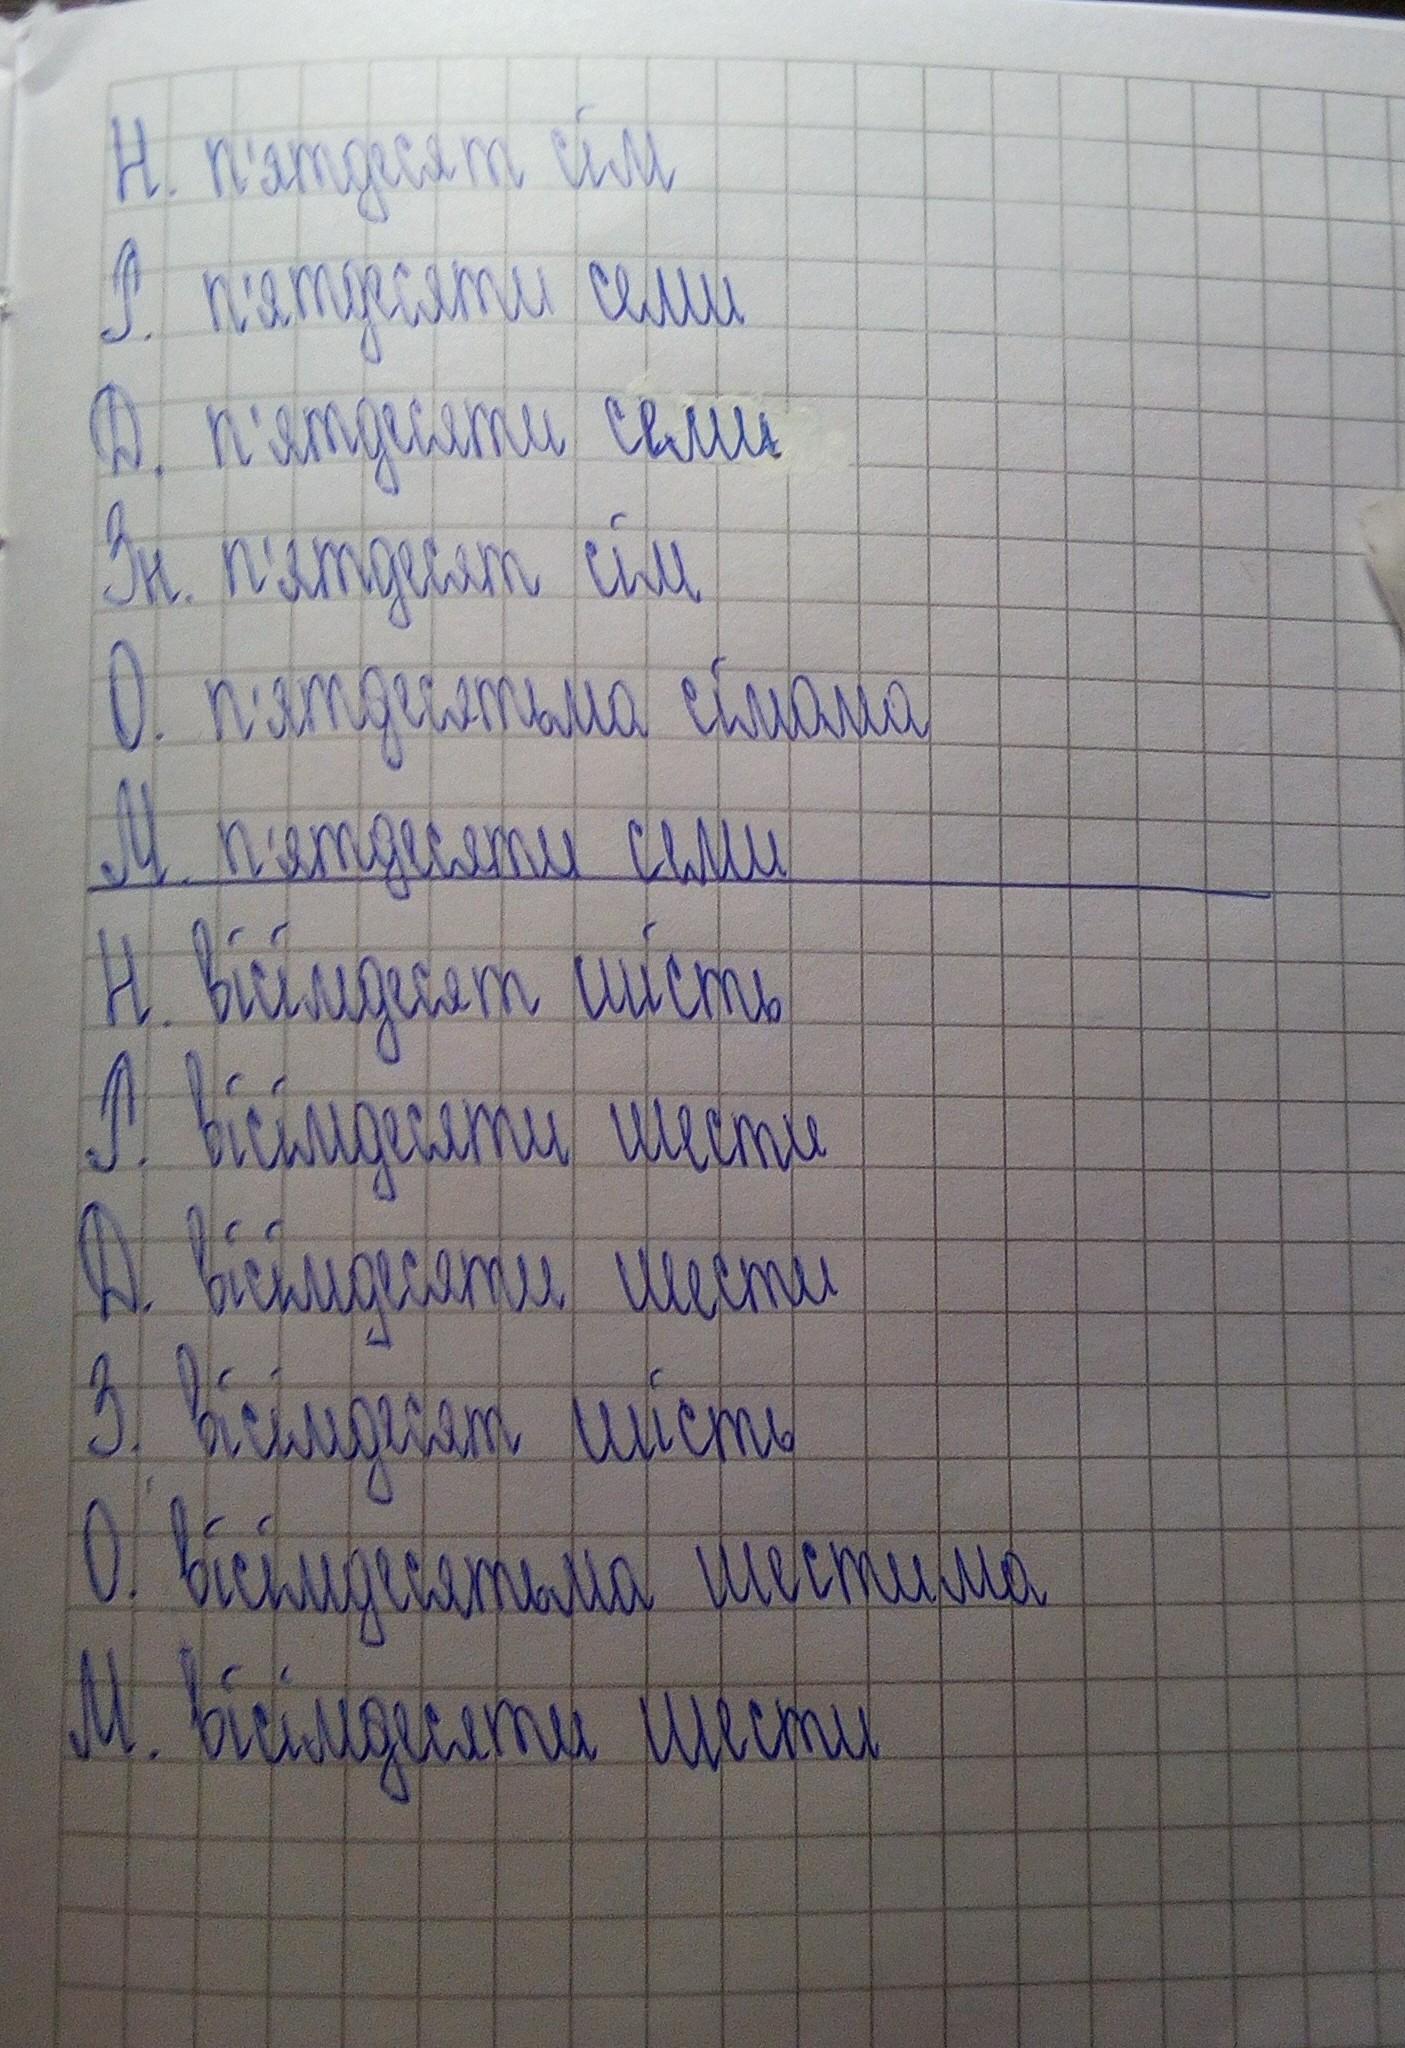 Н. п'ятдесят сім
Р. п'ятдесяти семи
Д. п'ятдесяти семи
Зн. п'ятдесят сім
О. п'ятдесятьма сімома
М. п'ятдесяти семи
Н. вісімдесят шість
Р. вісімдесяти шести
Д. вісімдесяти шести
З. вісімдесят шість
О. вісімдесятьма шестима
М. вісімдесяти шести